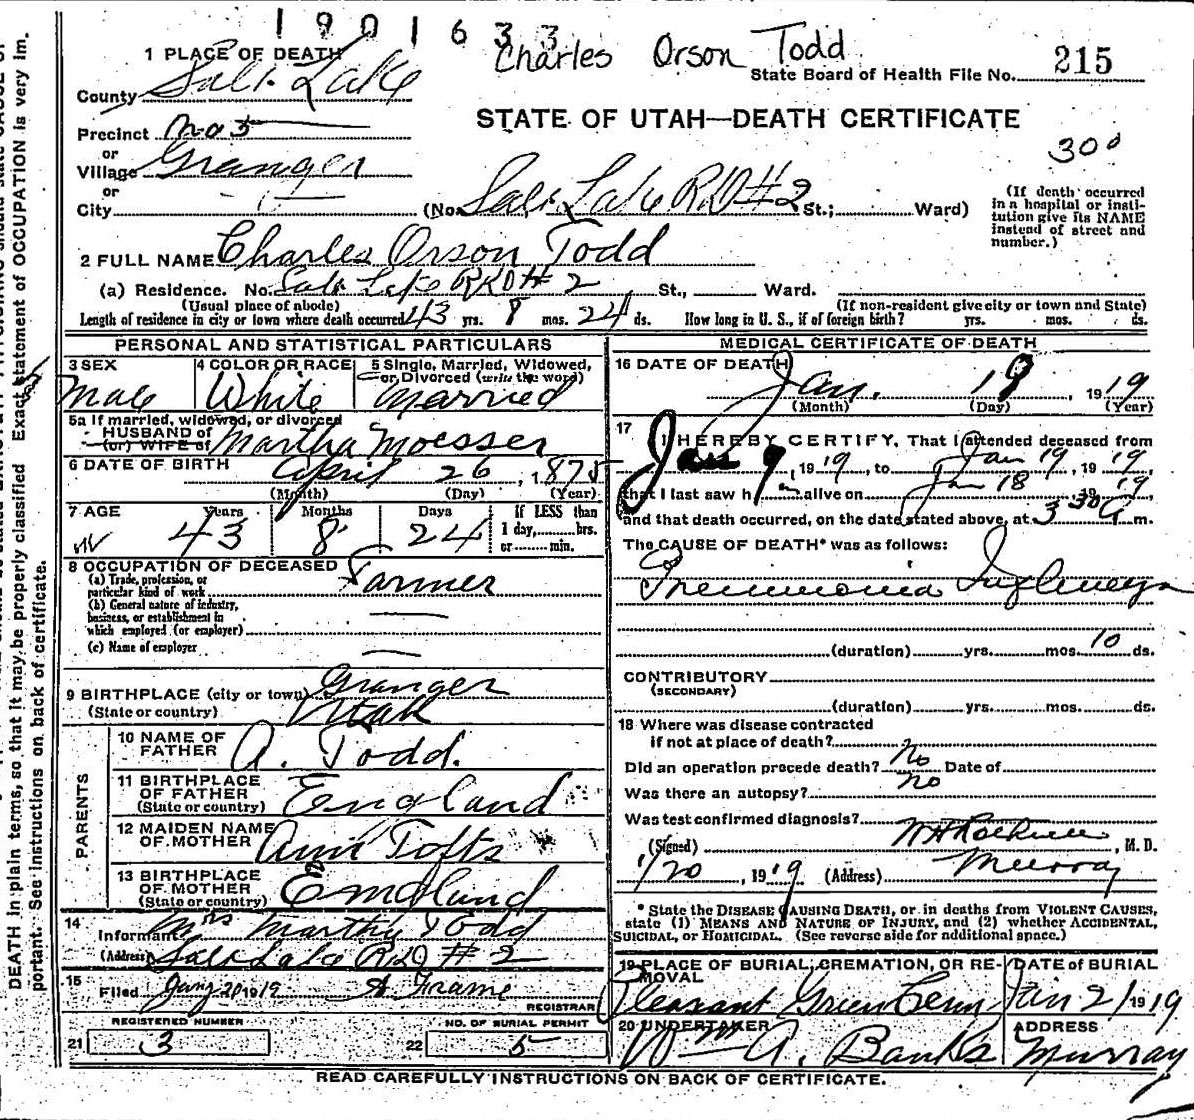 1901633
Charles Orson Todd
1 PLACE OF DEATH
State Board of Health File No. 215
County Salt Lake
STATE OF UTAH—DEATH CERTIFICATE
Precinct No 5
300
or
Village Granger
or
City (No. Salt Lake RFD #2 St.; Ward)
(If death occurred in a hospital or institution give its NAME instead of street and number.)
2 FULL NAME Charles Orson Todd
(a) Residence. No. Salt Lake RFD # 2 St., Ward.
(Usual place of abode) (If non-resident give city or town and State)
Length of residence in city or town where death occurred 43 yrs. 8 mos. 24 ds. How long in U. S., if of foreign birth? yrs. mos. ds.
PERSONAL AND STATISTICAL PARTICULARS
3 SEX Male
4 COLOR OR RACE White
5 Single, Married, Widowed, or Divorced (write the word) Married
5a If married, widowed, or divorced
HUSBAND of
(or) WIFE of Martha Moesser
6 DATE OF BIRTH April 26, 1875
(Month) (Day) (Year)
7 AGE Years 43 Months 8 Days 24 If LESS than 1 day, hrs. or min.
8 OCCUPATION OF DECEASED
(a) Trade, profession, or particular kind of work Farmer
(b) General nature of industry, business, or establishment in which employed (or employer)
(c) Name of employer
9 BIRTHPLACE (city or town) Granger
(State or country) Utah
PARENTS
10 NAME OF FATHER A. Todd.
11 BIRTHPLACE OF FATHER (State or country) England
12 MAIDEN NAME OF MOTHER Ann Tofts
13 BIRTHPLACE OF MOTHER (State or country) England
14 Informant Mrs Martha Todd
(Address) Salt Lake RFD # 2
15 Filed Jany 20 1919 A Frame REGISTRAR
REGISTERED NUMBER
21 3
NO. OF BURIAL PERMIT
22 5
MEDICAL CERTIFICATE OF DEATH
16 DATE OF DEATH Jan. 19, 1919
(Month) (Day) (Year)
17 I HEREBY CERTIFY, That I attended deceased from
Jan 9, 1919, to Jan 19, 1919,
that I last saw h alive on Jan 18, 1919
and that death occurred, on the date stated above, at 3 30 A m.
The CAUSE OF DEATH* was as follows:
Pneumonia Influenza
(duration) yrs. mos. 10 ds.
CONTRIBUTORY
(SECONDARY)
(duration) yrs. mos. ds.
18 Where was disease contracted
if not at place of death?
Did an operation precede death? No Date of
Was there an autopsy? No
Was test confirmed diagnosis?
(Signed) , M. D.
1/20, 1919 (Address) Murray
* State the DISEASE CAUSING DEATH, or in deaths from VIOLENT CAUSES,
state (1) MEANS AND NATURE OF INJURY, and (2) whether ACCIDENTAL,
SUICIDAL, or HOMICIDAL. (See reverse side for additional space.)
19 PLACE OF BURIAL, CREMATION, OR REMOVAL Pleasant Green Cem
DATE of BURIAL Jan 21 1919
20 UNDERTAKER Wm A. Banks
ADDRESS Murray
READ CAREFULLY INSTRUCTIONS ON BACK OF CERTIFICATE.
Exact statement of OCCUPATION is very im-
DEATH in plain terms, so that it may be properly classified
portant. See instructions on back of certificate.